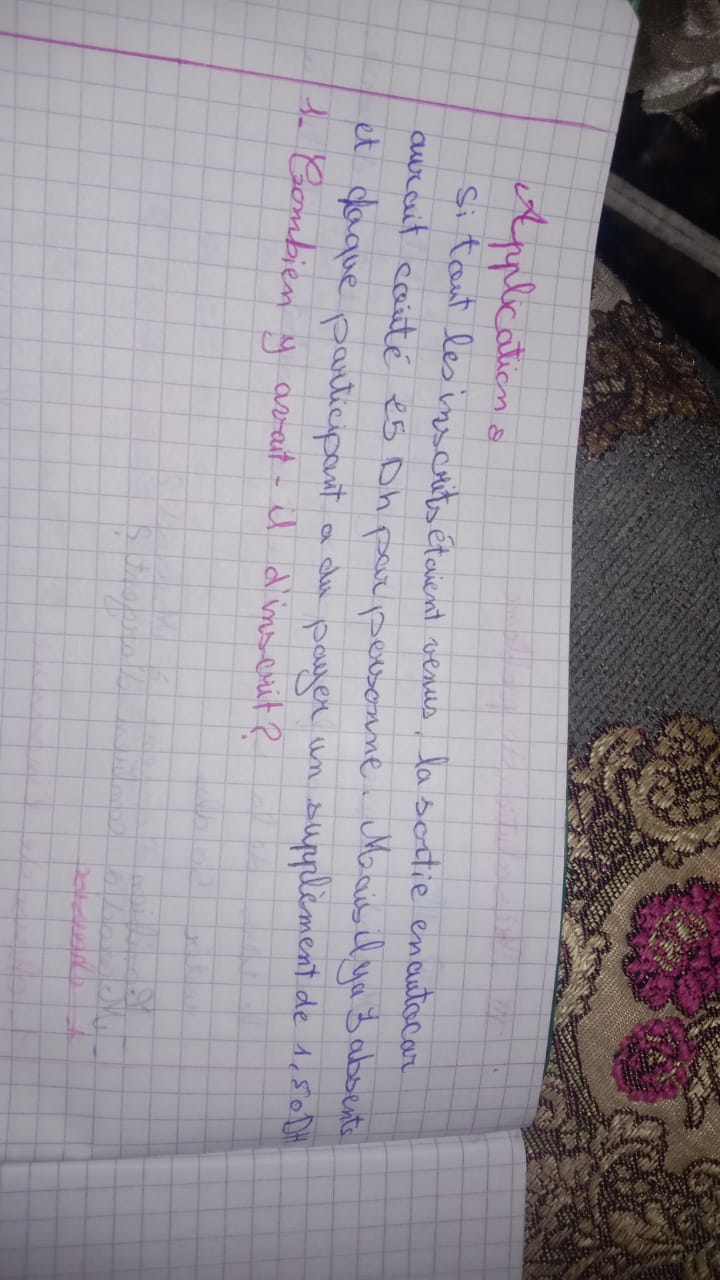 Application :
Si tout les inscrits étaient venus, la sortie en autocar
aurait coûté 25 Dh par personne. Mais il y a 3 absents
et chaque participant a du payer un supplément de 1,50DH
1- Combien y avait-il d'inscrit?